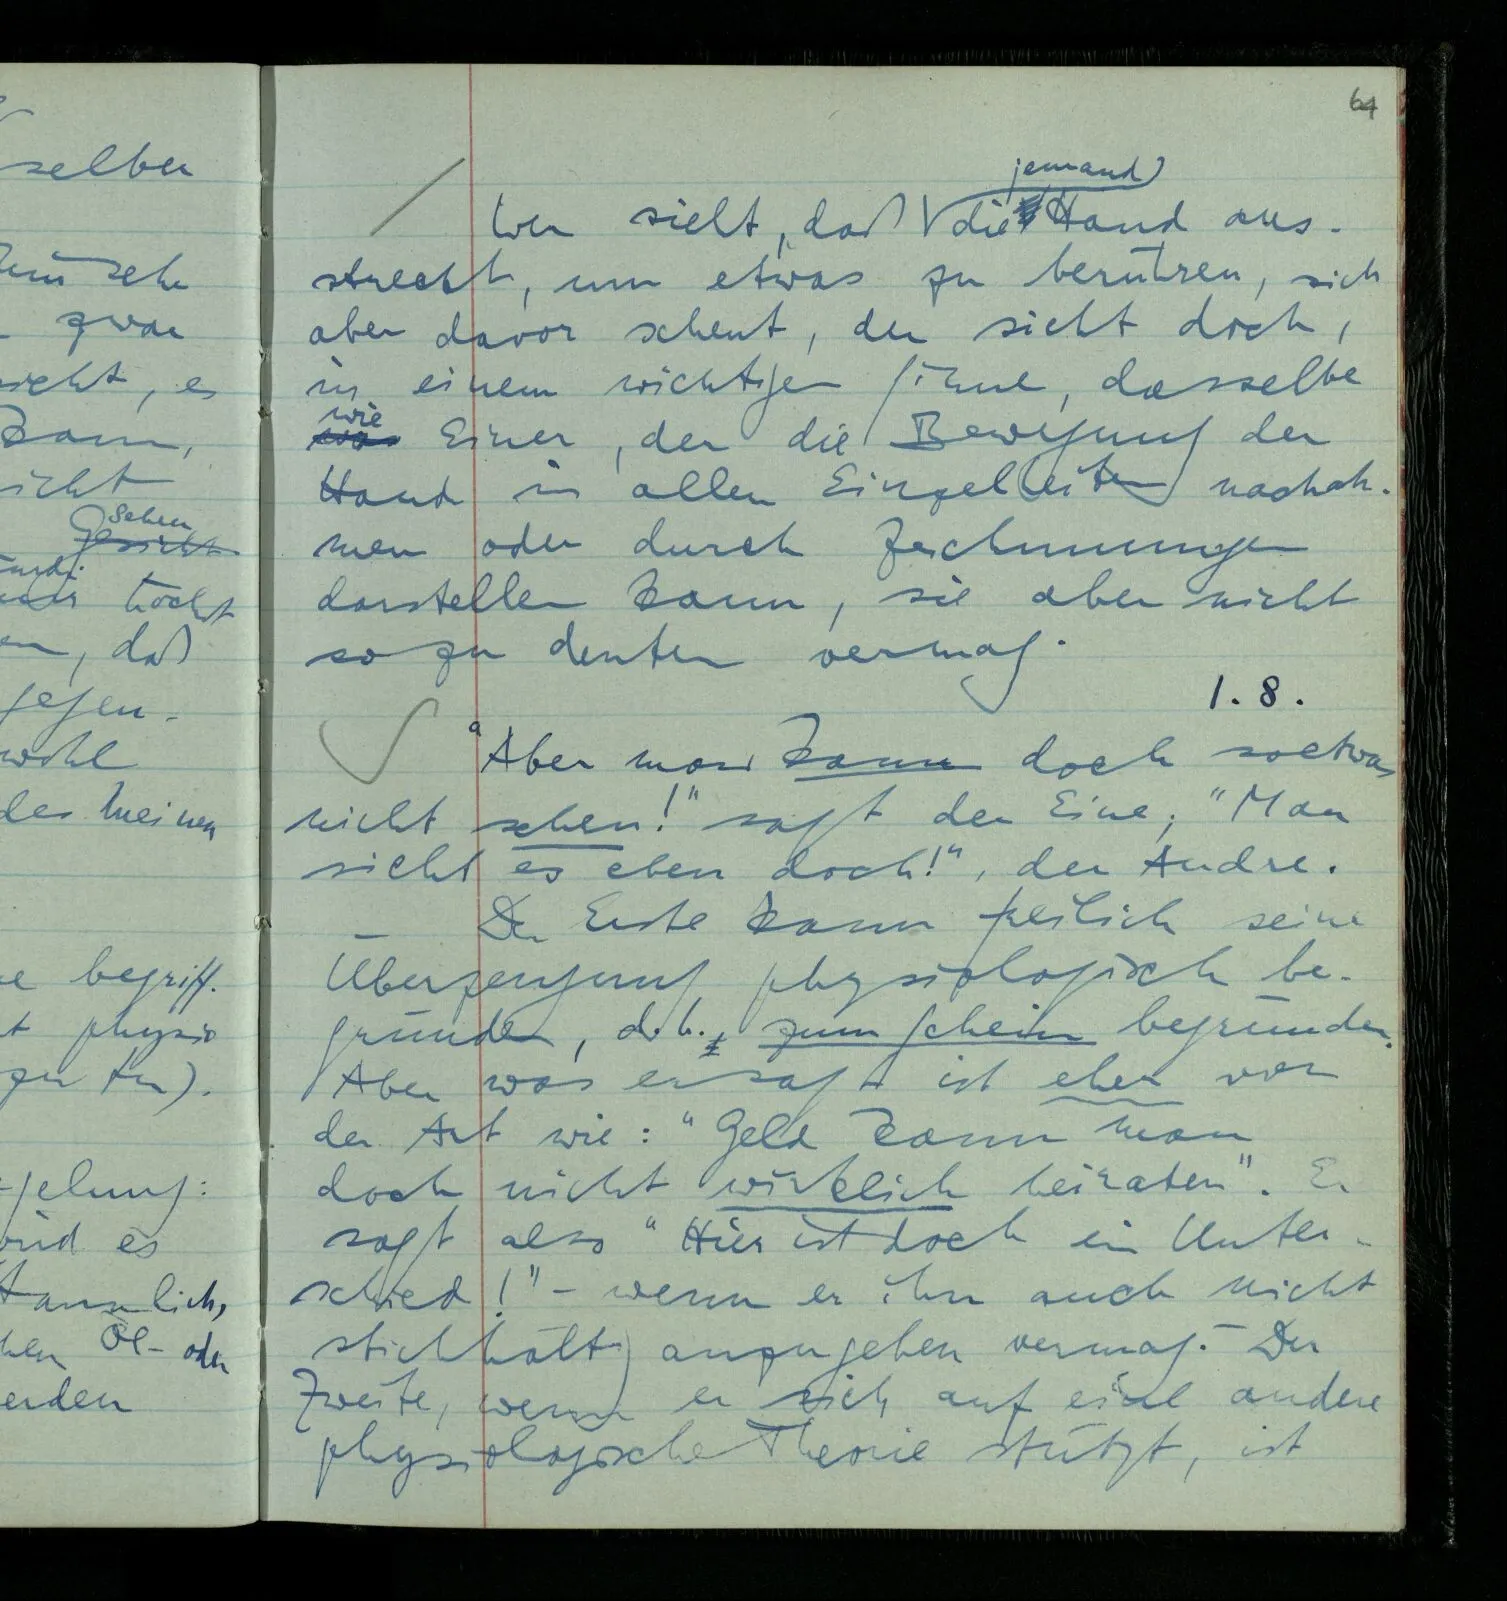 selber
zwar
nicht, es
kann,
nicht
Sehen
Gesicht
höchst
daß
gegen-
wohl
des Meinen
begriff-
physio
zu tun).
gelung:
wird es
Öl- oder
werden
64
jemand
Wer sieht, daß die Hand aus-
streckt, um etwas zu berühren, sich
aber davor scheut, der sieht doch,
in einem wichtigen Sinne, dasselbe
wie
was Einer, der die Bewegung der
Hand in allen Einzelheiten nachah-
men oder durch Zeichnungen
darstellen kann, sie aber nicht
so zu deuten vermag.
1.8.
"Aber man kann doch soetwas
nicht sehen!" sagt der Eine; "Man
sieht es eben doch!", der Andre.
– Der Erste kann freilich seine
Überzeugung physiologisch be-
gründen, d.h., zum Schein begründen.
Aber was er sagt ist eher von
der Art wie: "Geld kann man
doch nicht wirklich heiraten". Er
sagt also "Hier ist doch ein Unter-
schied!" – wenn er ihn auch nicht
stichhältig anzugeben vermag. – Der
Zweite, wenn er sich auf eine andere
physiologische Theorie stützt, ist